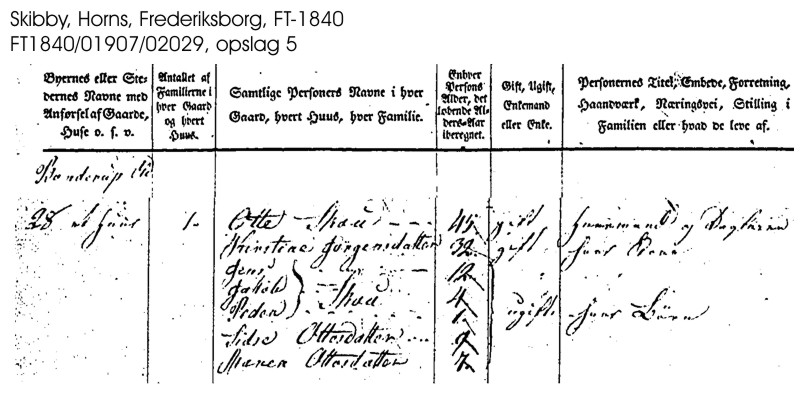 Skibby, Horns, Frederiksborg, FT-1840
FT1840/01907/02029, opslag 5
Byernes eller Ste-
dernes Navne med
Anførsel af Gaarde,
Huse o. s. v.
Antallet af
Familierne i
hver Gaard
og hvert
Huus.
Samtlige Personers Navne i hver
Gaard, hvert Huus, hver Familie.
Enhver
Persons
Alder, det
løbende Al-
ders-Aar
iberegnet.
Gift, Ugift,
Enkemand
eller Enke.
Personernes Titel, Embede, Forretning,
Haandværk, Næringsvei, Stilling i
Familien eller hvad de leve af.
28 et Huus 1. Otte Skou 45 gift Huusmand og Daglejer
Kirstine Jørgensdatter 32 gift hans Kone
Jens 12
Jakob Skou 4
Peder 1 ugift hans Børn
Sidse Ottesdatter 9
Maren Ottesdatter 7